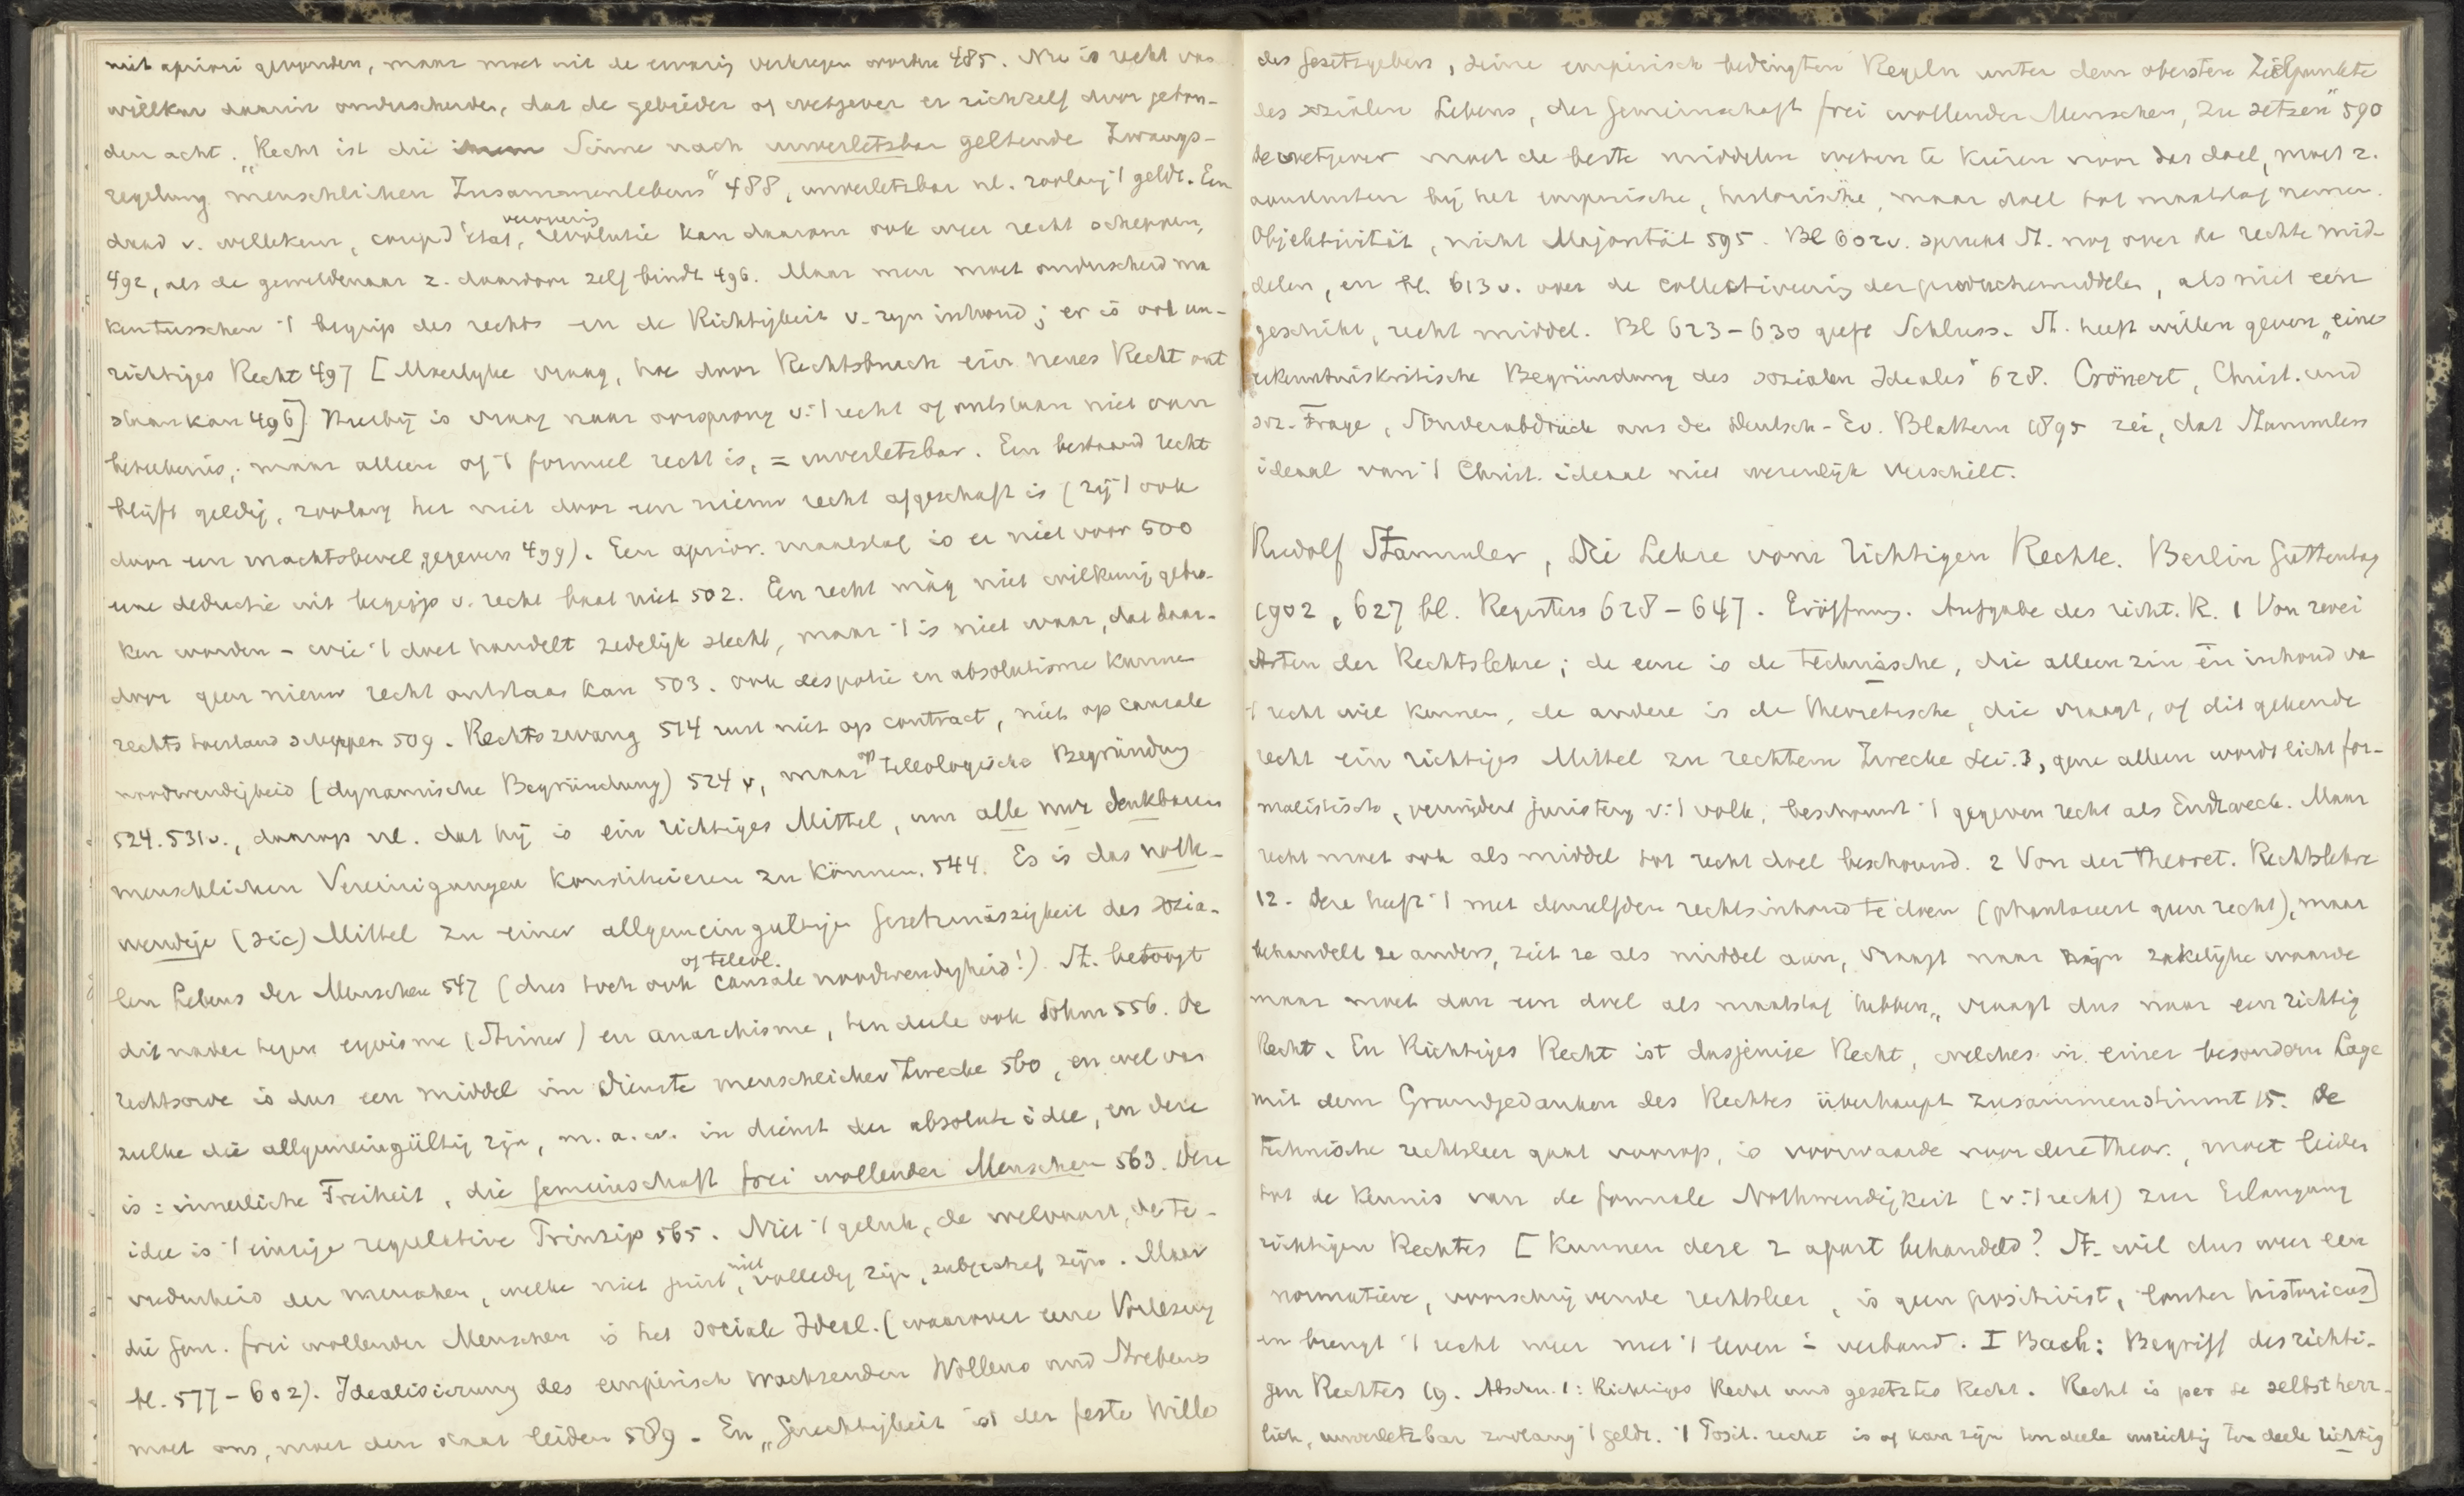 niet apriori gevonden, maar moet uit de ervaring verkregen worden 485. Nu is recht van
willkur daarin onderscheiden, dat de gebieder of wetgever er zichzelf door gebon-
den acht. „Recht ist die Sinne nach unverletzbar geltende Zwangs-
regelung menschlichen Zusammenlebens" 488, unverletzbar nl. zoolang 't geldt. Een
daad v. willekeur, coup d'état, revolutie kan daarom ook weer recht scheppen,
492, als de geweldenaar z. daardoor zelf bindt 496. Maar men moet onderscheid ma
ken tusschen 't begrip des rechts en de Richtigkeit v. zijn inhoud; er is ook un-
richtiges Recht 497 [Moeilyke vraag, hoe door Rechtsbruch ein neues Recht ont
staan kan 496] Hierbij is vraag naar oorsprong v. 't recht of ontstaan niet van
beteekenis; maar alleen of 't formeel recht is, = unverletzbar. Een bestaand recht
blijft geldig, zoolang het niet door een nieuw recht afgeschaft is (zij 't ook
door een machtsbevel gegeven 499). Een aprior. maatstaf is er niet voor 500
eene deductie uit begrip v. recht baat niet 502. Een recht màg niet willkeurig gebro-
ken worden – wie 't doet handelt zedelijk slecht, maar 't is niet waar, dat daar-
door geen nieuw recht ontstaan kan 503. ook despotie en absolutisme kunnen
rechtstoestand scheppen 509. Rechtszwang 514 rust niet op contract, niet op causale
noodwendigheid (dynamische Begründung) 524 v, maar op teleologische Begründung
524. 531v., daarop nl. dat hij is ein richtiges Mittel, um alle nur denkbaren
menschlichen Vereinigungen konstituieren zu können. 544. Es is das noth-
wendige (sic) Mittel zu einer allgemeingultige Gesetzmässigkeit des sozia-
len Lebens der Menschen 547 (dus toch ook causale of teleol. noodwendigheid!). St. betoogt
dit nader tegen egoisme (Stirner) en anarchisme, ten deele ook Sohm 556. De
rechtsorde is dus een middel im Dienste menschlicher Zwecke 560, en wel van
zulke die allgemeingültig zijn, m. a. w. in dienst der absolute idee, en deze
is: innerliche Freiheit, die Gemeinschaft frei wollender Menschen 563. Deze
idee is 't einzige regulative Prinzip 565. Niet 't geluk, de welvaart, de te-
vredenheid der menschen, welke niet juist, niet volledig zijn, subjectief zijn. Maar
die Gem. frei wollender Menschen is het sociale Ideal. (waarover eene Vorlesung
bl. 577–602). Idealisierung des empirisch wachsenden Wollens und Strebens
moet ons, moet den staat leiden 589. En „Gerechtigkeit ist der feste Wille
des Gesetzgebers, seine empirisch bedingten Regeln unter dem obersten Zielpunkte
des sozialen Lebens, der Gemeinschaft frei wollender Menschen, zu setzen" 590
de wetgever moet de beste middelen weten te kiezen voor dat doel, moet z.
aansluiten bij het empirische, historische, maar doel tot maatstaf nemen.
Objektivität, nicht Majorität 595. Bl 602v. spreekt St. nog over de rechte mid-
delen, en bl. 613 v. over de collectiveering der productiemiddelen, als niet een
geschikt, recht middel. Bl 623–630 geeft Schluss. St. heeft willen geven „eine
erkenntniskritische Begründung des sozialen Ideales" 628. Crönert, Christ. und
soz. Frage, Sonderabdruck aus den Deutsch-Ev. Blattern 1895 zei, dat Stammlers
ideaal van 't Christ. ideaal niet wezenlijk verschilt.
Rudolf Stammler, Die Lehre vom richtigen Rechte. Berlin Guttentag
1902, 627 bl. Registers 628–647. Eröffnung. Aufgabe des richt. R. 1 Von zwei
Arten der Rechtslehre; de eene is de technische, die alleen zin en inhoud va
't recht wil kennen, de andere is de theoretische, die vraagt, of dit geldende
recht ein richtiges Mittel zu rechtem Zwecke sei. 3, gene alleen wordt licht for-
malistisch, vervreemdt juristen v. 't volk, beschouwt 't gegeven recht als Endzweck. Maar
recht moet ook als middel tot recht doel beschouwd. 2 Von der theoret. Rechtslehre
12. Deze heeft 't met denzelfden rechtsinhoud te doen (phantaseert geen recht), maar
behandelt ze anders, ziet ze als middel aan, vraagt naar zijn zakelijke waarde
maar moet dan een doel als maatstaf hebben, vraagt dus naar een richtig
Recht. En Richtiges Recht ist dasjenige Recht, welches in einer besondern Lage
mit dem Grundgedanken des Rechtes überhaupt zusammenstimmt 15. De
technische rechtsleer gaat voorop, is voorwaarde voor deze theor., moet leiden
tot de kennis van de formale Nothwendigkeit (v. 't recht) zur Erlangung
richtigen Rechtes [Kunnen deze 2 apart behandeld? St. wil dus weer een
normatieve, voorschrijvende rechtsleer, is geen positivist, louter historicus]
en brengt 't recht weer met 't leven in verband. I Buch: Begriff des richti-
gen Rechtes 19. Abschn. 1: Richtiges Recht und gesetztes Recht. Recht is per se selbstherr-
lich, unverletzbar zoolang 't geldt. 't Posit. recht is of kan zijn ten deele unrichtig ten deele richtig